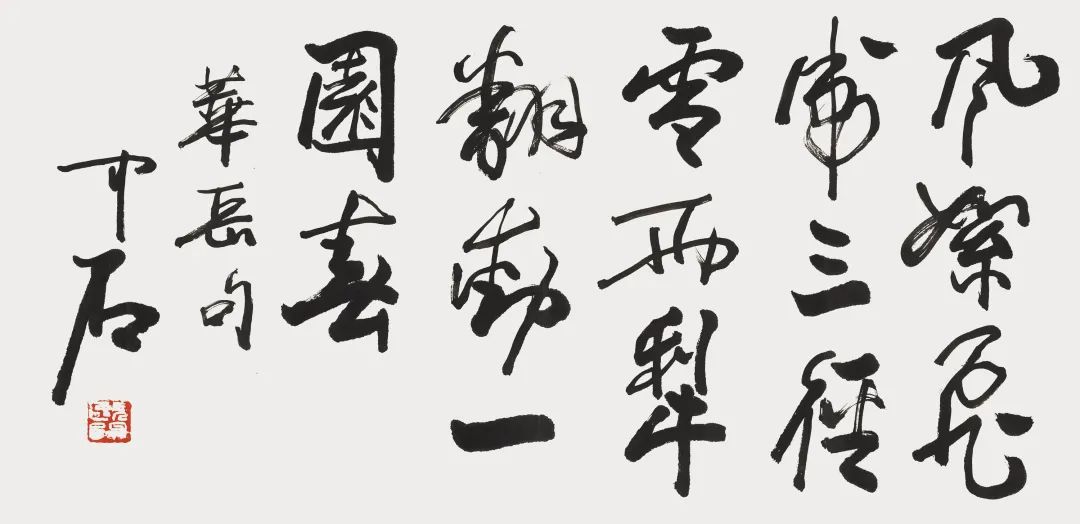 风絮飛
三徑
雪雨犁
翻動一
園春
華岳句
中石